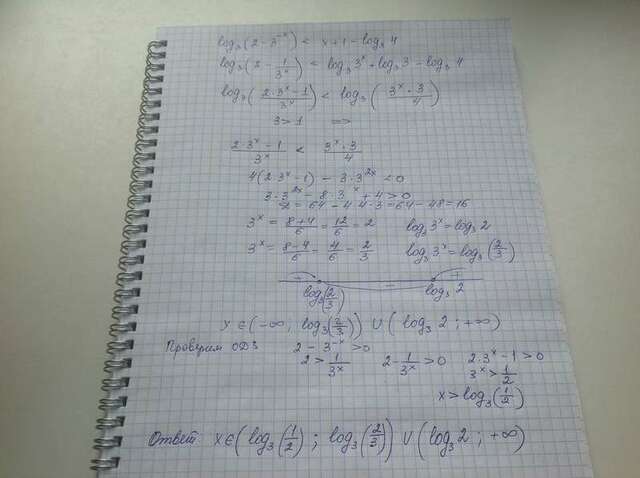 log₃(2 - 3⁻ˣ) < x + 1 - log₃ 4
log₃(2 - 1/3ˣ) < log₃ 3ˣ + log₃ 3 - log₃ 4
log₃((2·3ˣ - 1)/3ˣ) < log₃((3ˣ·3)/4)
3 > 1 =>
(2·3ˣ - 1)/3ˣ < (3ˣ·3)/4
4(2·3ˣ - 1) - 3·3²ˣ < 0
3·3²ˣ - 8·3ˣ + 4 > 0
D = 64 - 4·4·3 = 64 - 48 = 16
3ˣ = (8+4)/6 = 12/6 = 2 log₃ 3ˣ = log₃ 2
3ˣ = (8-4)/6 = 4/6 = 2/3 log₃ 3ˣ = log₃(2/3)
+ - +
log₃(2/3) log₃ 2
x ∈ (-∞; log₃(2/3)) ∪ (log₃ 2; +∞)
Проверим ОДЗ 2 - 3⁻ˣ > 0
2 > 1/3ˣ 2 - 1/3ˣ > 0 2·3ˣ - 1 > 0
3ˣ > 1/2
x > log₃(1/2)
Ответ x ∈ (log₃(1/2); log₃(2/3)) ∪ (log₃ 2; +∞)